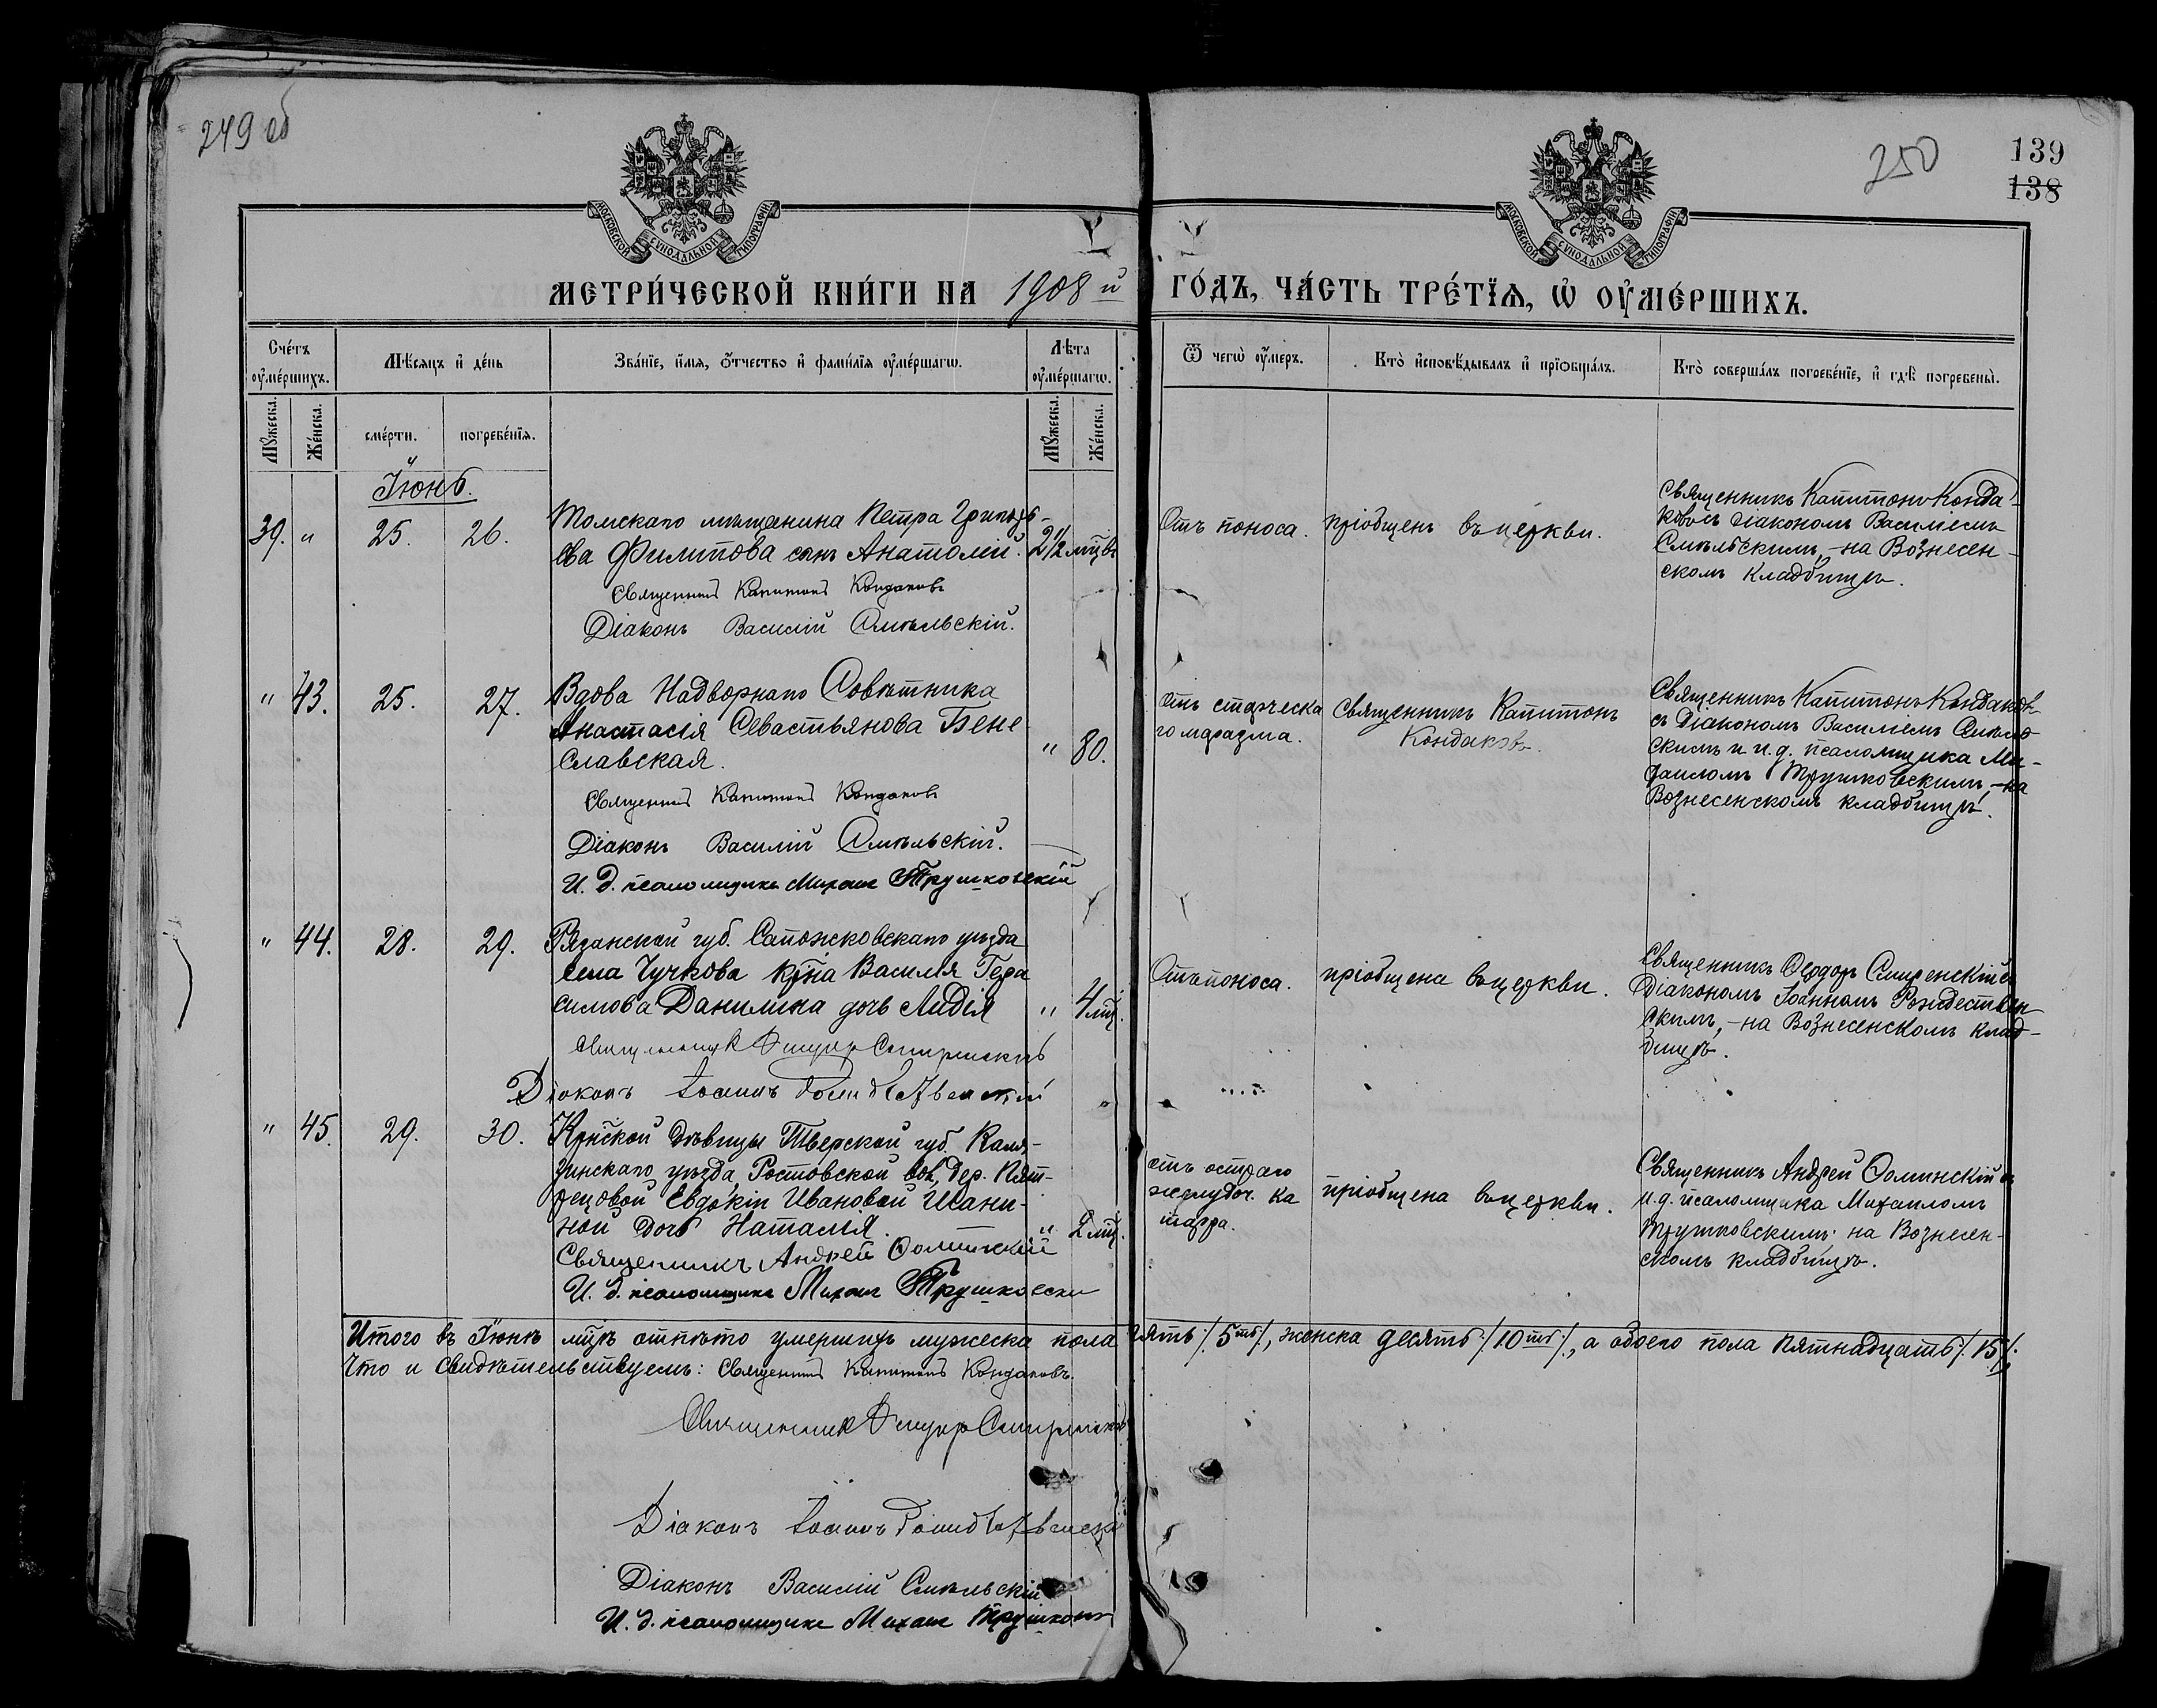 249 об
250
139
138
МОСКОВСКОЙ СѴНОДАЛЬНОЙ ТИПОГРАФІИ
МОСКОВСКОЙ СѴНОДАЛЬНОЙ ТИПОГРАФІИ
МЕТРИ́ЧЕСКОЙ КНИ́ГИ НА 1908 й ГО́ДЪ, ЧА́СТЬ ТРЕ́ТЇѦ, Ѡ҆ ОУ҆МЕ́РШИХЪ.
Сче́тъ оу҆ме́ршихъ.
Мѣ́сяцъ и҆ де́нь
Зва́нїе, и҆́мя, ѻ҆́тчество и҆ фами́лїя оу҆ме́ршагѡ.
Лѣ́та оу҆ме́ршагѡ.
Ѿ чегѡ̀ оу҆́меръ.
Кто̀ и҆сповѣ́дывалъ и҆ прїѡбща́лъ.
Кто̀ соверша́лъ погребе́нїе, и҆ гдѣ̀ погребены̀.
Мꙋ́жеска.
Же́нска.
сме́рти.
погребе́нїя.
Мꙋ́жеска.
Же́нска.
Іюнь.
39. " 25. 26.
Томскаго мѣщанина Петра Григорь-
ева Филитова сынъ Анатолій. 2 1/2 мцѣ
Священникъ Капитонъ Кондаковъ
Діаконъ Василій Смѣльскій.
Отъ поноса.
пріобщенъ въ церкви.
Священникъ Капитонъ Конда-
ковъ съ діакономъ Василіемъ
Смѣльскимъ, - на Вознесен-
скомъ кладбищѣ.
" 43. 25. 27.
Вдова Надворнаго Совѣтника
Анастасія Севастьянова Бене-
славская. " 80.
Священникъ Капитонъ Кондаковъ
Діаконъ Василій Смѣльскій.
И. д. псаломщика Михаилъ Трушковскій
отъ старческа
го маразма.
Священникъ Капитонъ
Кондаковъ.
Священникъ Капитонъ Кондаковъ
съ діакономъ Василіемъ Смѣль-
скимъ и и.д. псаломщика Ми-
хаиломъ Трушковскимъ, - на
Вознесенскомъ кладбищѣ.
" 44. 28. 29.
Рязанской губ. Сапожковскаго уѣзда
села Чучкова кр-на Василія Гера
симова Данилина дочь Лидія " 4 мц.
Священникъ Ѳеодоръ Смиренскій
Діаконъ Іоаннъ Рождественскій
Отъ поноса.
пріобщена въ церкви.
Священникъ Ѳеодоръ Смиренскій съ
діакономъ Іоанномъ Рождествен
скимъ, - на Вознесенскомъ клад-
бищѣ.
" 45. 29. 30.
Кр-нской дѣвицы Тверской губ. Каля-
зинскаго уѣзда, Ростовской вол., дер.
Евдокіи Ивановой
ной дочь Наталія. " 2 мц.
Священникъ Андрей
И. д. псаломщика Михаилъ Трушковскій
отъ остраго
желудоч. ка
тарра.
пріобщена въ церкви.
Священникъ Андрей съ
и.д. псаломщика Михаиломъ
Трушковскимъ на Вознесен-
скомъ кладбищѣ.
Итого въ Іюнѣ мцѣ отпѣто умершихъ мужеска пола пять /5ть/, женска десять /10ть/, а обоего пола пятнадцать /15/.
Что и свидѣтельствуемъ: Священникъ Капитонъ Кондаковъ.
Священникъ Ѳеодоръ Смиренскій
Діаконъ Іоаннъ Рождественскій
Діаконъ Василій Смѣльскій
И. д. псаломщика Михаилъ Трушковскій